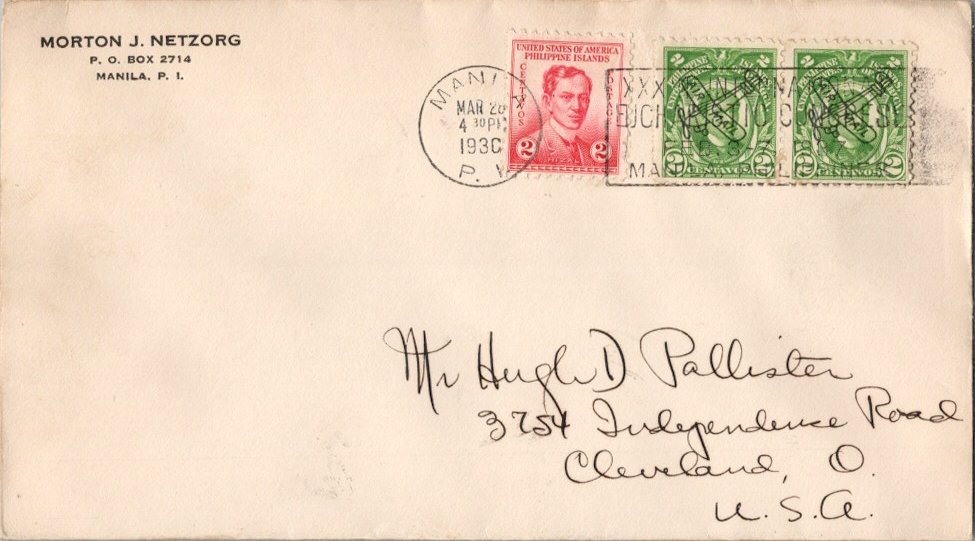 MORTON J. NETZORG
P. O. BOX 2714
MANILA, P. I.
MANILA
MAR 28
4 30 PM
193
P.
UNITED STATES OF AMERICA
PHILIPPINE ISLANDS
CENTAVOS
POSTAGE
2 RIZAL 2
XXXIII
MANILA
2 2
PHILIPPINE ISLANDS
2 CENTAVOS 2
2 2
2 CENTAVOS 2
Mr Hugh D Pallister
3754 Independence Road
Cleveland, O.
U.S.A.